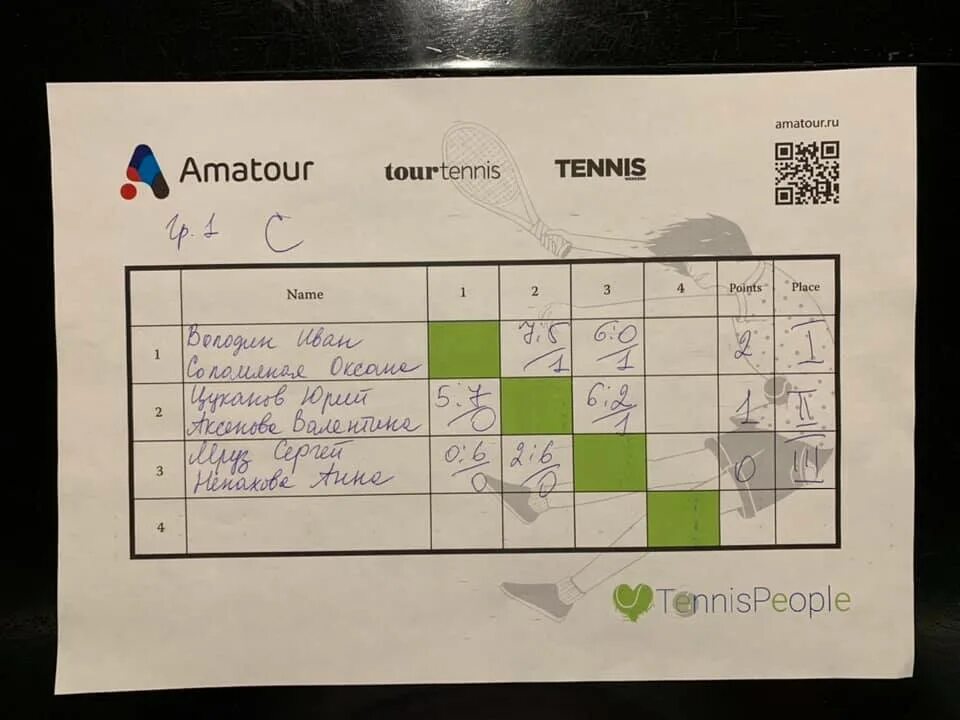 amatour.ru
Amatour tourtennis TENNIS
Гр. 1 C
Name 1 2 3 4 Points Place
1 Володин Иван 7:5 6:0 2 I
Соломяная Оксана 1 1
2 Цуканов Юрий 5:7 6:2 1 II
Аксенова Валентина 0 1
3 Мруз Сергей 0:6 2:6 0 III
Ненахова Анна 0 0
4
TennisPeople